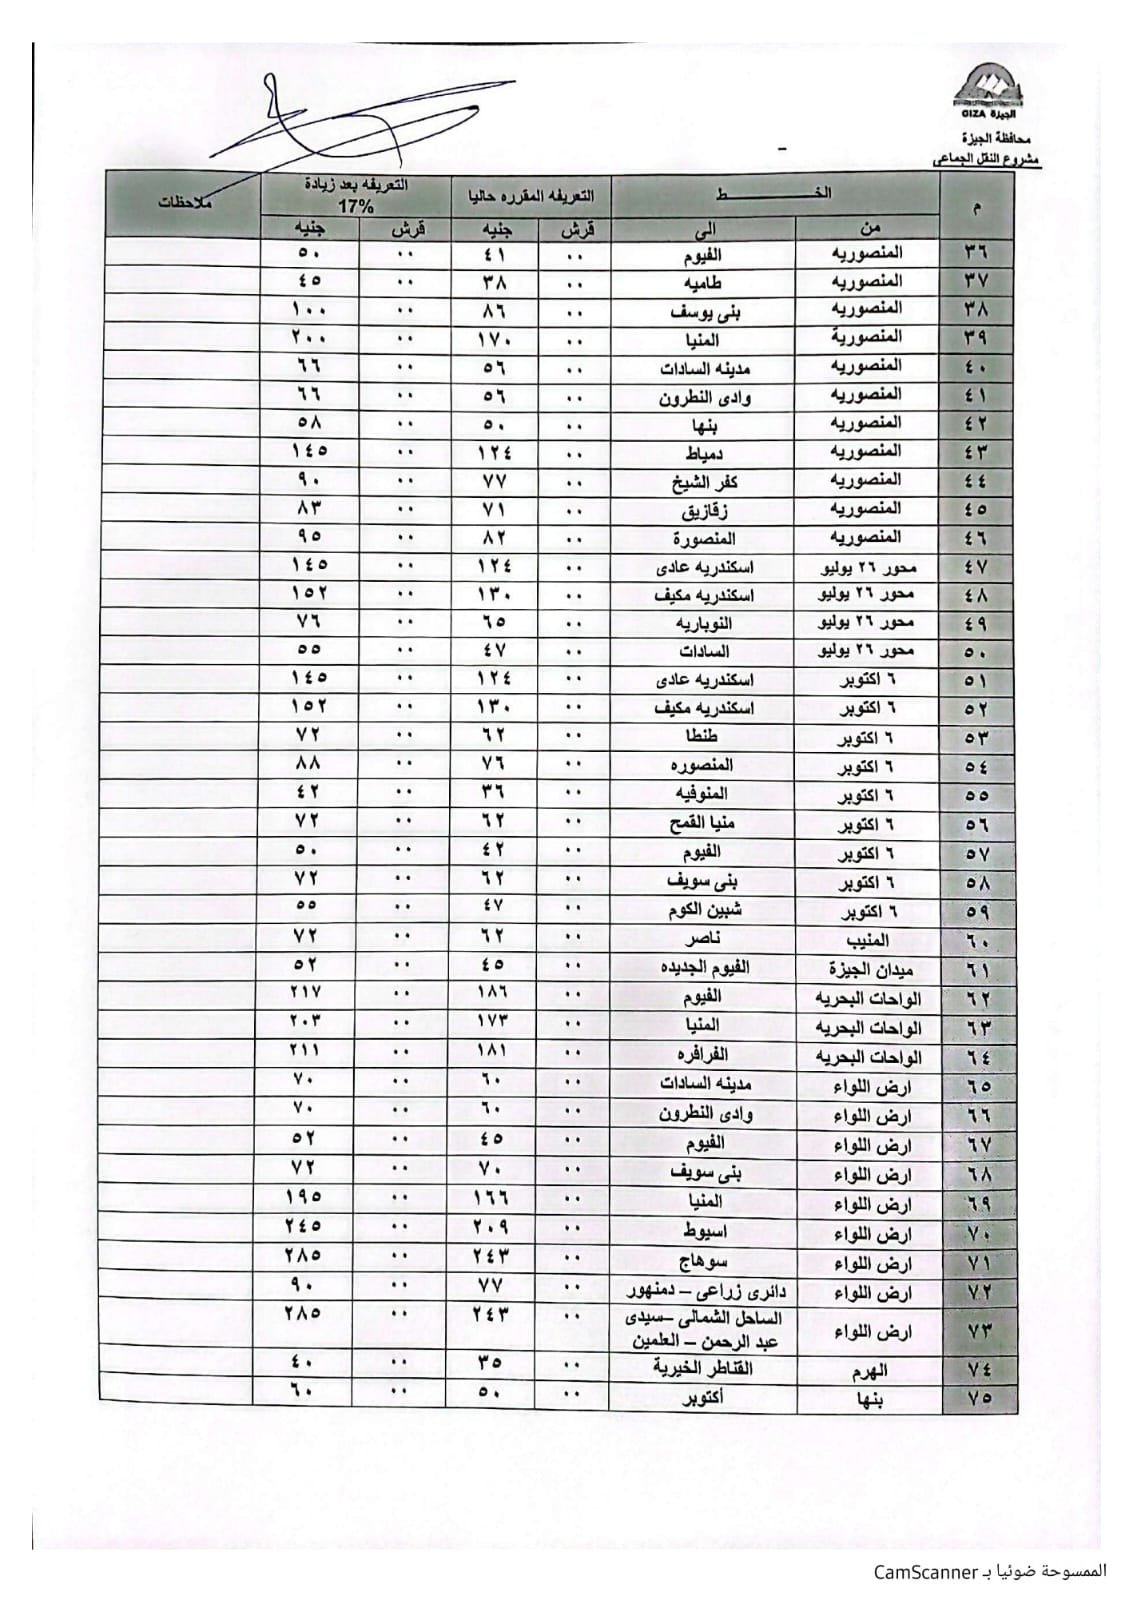 الجيزة GIZA
محافظة الجيزة
مشروع النقل الجماعى
م الخـــــــــط التعريفه المقرره حاليا التعريفه بعد زيادة 17% ملاحظات
من الى قرش جنيه قرش جنيه
٣٦ المنصوريه الفيوم ٠٠ ٤١ ٠٠ ٥٠
٣٧ المنصوريه طاميه ٠٠ ٣٨ ٠٠ ٤٥
٣٨ المنصوريه بنى يوسف ٠٠ ٨٦ ٠٠ ١٠٠
٣٩ المنصورية المنيا ٠٠ ١٧٠ ٠٠ ٢٠٠
٤٠ المنصوريه مدينه السادات ٠٠ ٥٦ ٠٠ ٦٦
٤١ المنصوريه وادى النطرون ٠٠ ٥٦ ٠٠ ٦٦
٤٢ المنصوريه بنها ٠٠ ٥٠ ٠٠ ٥٨
٤٣ المنصوريه دمياط ٠٠ ١٢٤ ٠٠ ١٤٥
٤٤ المنصوريه كفر الشيخ ٠٠ ٧٧ ٠٠ ٩٠
٤٥ المنصوريه زقازيق ٠٠ ٧١ ٠٠ ٨٣
٤٦ المنصوريه المنصورة ٠٠ ٨٢ ٠٠ ٩٥
٤٧ محور ٢٦ يوليو اسكندريه عادى ٠٠ ١٢٤ ٠٠ ١٤٥
٤٨ محور ٢٦ يوليو اسكندريه مكيف ٠٠ ١٣٠ ٠٠ ١٥٢
٤٩ محور ٢٦ يوليو النوباريه ٠٠ ٦٥ ٠٠ ٧٦
٥٠ محور ٢٦ يوليو السادات ٠٠ ٤٧ ٠٠ ٥٥
٥١ ٦ اكتوبر اسكندريه عادى ٠٠ ١٢٤ ٠٠ ١٤٥
٥٢ ٦ اكتوبر اسكندريه مكيف ٠٠ ١٣٠ ٠٠ ١٥٢
٥٣ ٦ اكتوبر طنطا ٠٠ ٦٢ ٠٠ ٧٢
٥٤ ٦ اكتوبر المنصوره ٠٠ ٧٦ ٠٠ ٨٨
٥٥ ٦ اكتوبر المنوفيه ٠٠ ٣٦ ٠٠ ٤٢
٥٦ ٦ اكتوبر منيا القمح ٠٠ ٦٢ ٠٠ ٧٢
٥٧ ٦ اكتوبر الفيوم ٠٠ ٤٢ ٠٠ ٥٠
٥٨ ٦ اكتوبر بنى سويف ٠٠ ٦٢ ٠٠ ٧٢
٥٩ ٦ اكتوبر شبين الكوم ٠٠ ٤٧ ٠٠ ٥٥
٦٠ المنيب ناصر ٠٠ ٦٢ ٠٠ ٧٢
٦١ ميدان الجيزة الفيوم الجديده ٠٠ ٤٥ ٠٠ ٥٢
٦٢ الواحات البحريه الفيوم ٠٠ ١٨٦ ٠٠ ٢١٧
٦٣ الواحات البحريه المنيا ٠٠ ١٧٣ ٠٠ ٢٠٣
٦٤ الواحات البحريه الفرافره ٠٠ ١٨١ ٠٠ ٢١١
٦٥ ارض اللواء مدينه السادات ٠٠ ٦٠ ٠٠ ٧٠
٦٦ ارض اللواء وادى النطرون ٠٠ ٦٠ ٠٠ ٧٠
٦٧ ارض اللواء الفيوم ٠٠ ٤٥ ٠٠ ٥٢
٦٨ ارض اللواء بنى سويف ٠٠ ٧٠ ٠٠ ٧٢
٦٩ ارض اللواء المنيا ٠٠ ١٦٦ ٠٠ ١٩٥
٧٠ ارض اللواء اسيوط ٠٠ ٢٠٩ ٠٠ ٢٤٥
٧١ ارض اللواء سوهاج ٠٠ ٢٤٣ ٠٠ ٢٨٥
٧٢ ارض اللواء دائرى زراعى – دمنهور ٠٠ ٧٧ ٠٠ ٩٠
٧٣ ارض اللواء الساحل الشمالى –سيدى ٠٠ ٢٤٣ ٠٠ ٢٨٥
عبد الرحمن – العلمين
٧٤ الهرم القناطر الخيرية ٠٠ ٣٥ ٠٠ ٤٠
٧٥ بنها أكتوبر ٠٠ ٥٠ ٠٠ ٦٠
الممسوحة ضوئيا بـ CamScanner